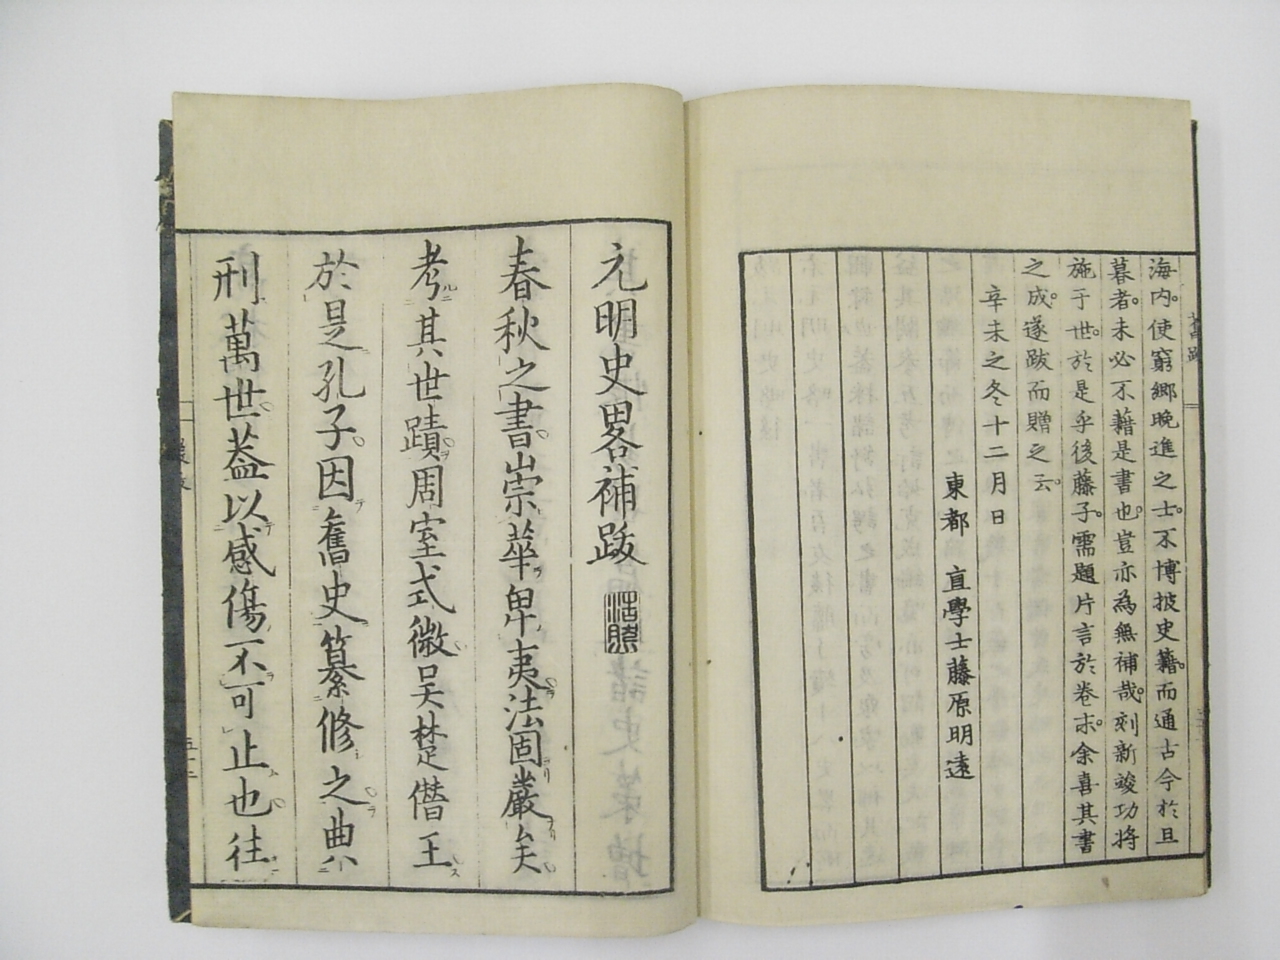 海内。使窮鄉晚進之士。不博披史籍。而通古今於旦
暮者。未必不藉是書也。豈亦為無補哉。刻新竣功將
施于世。於是乎後藤子。需題片言於卷末。余喜其書
之成。遂跋而贈之云。
辛未之冬十二月日
東都 直學士藤原明遠
元明史畧補跋
春秋之書崇華卑夷法固嚴矣
考其世蹟周室式微吳楚僭王
於是孔子因舊史纂修之典以
刑萬世蓋以感傷不可止也往